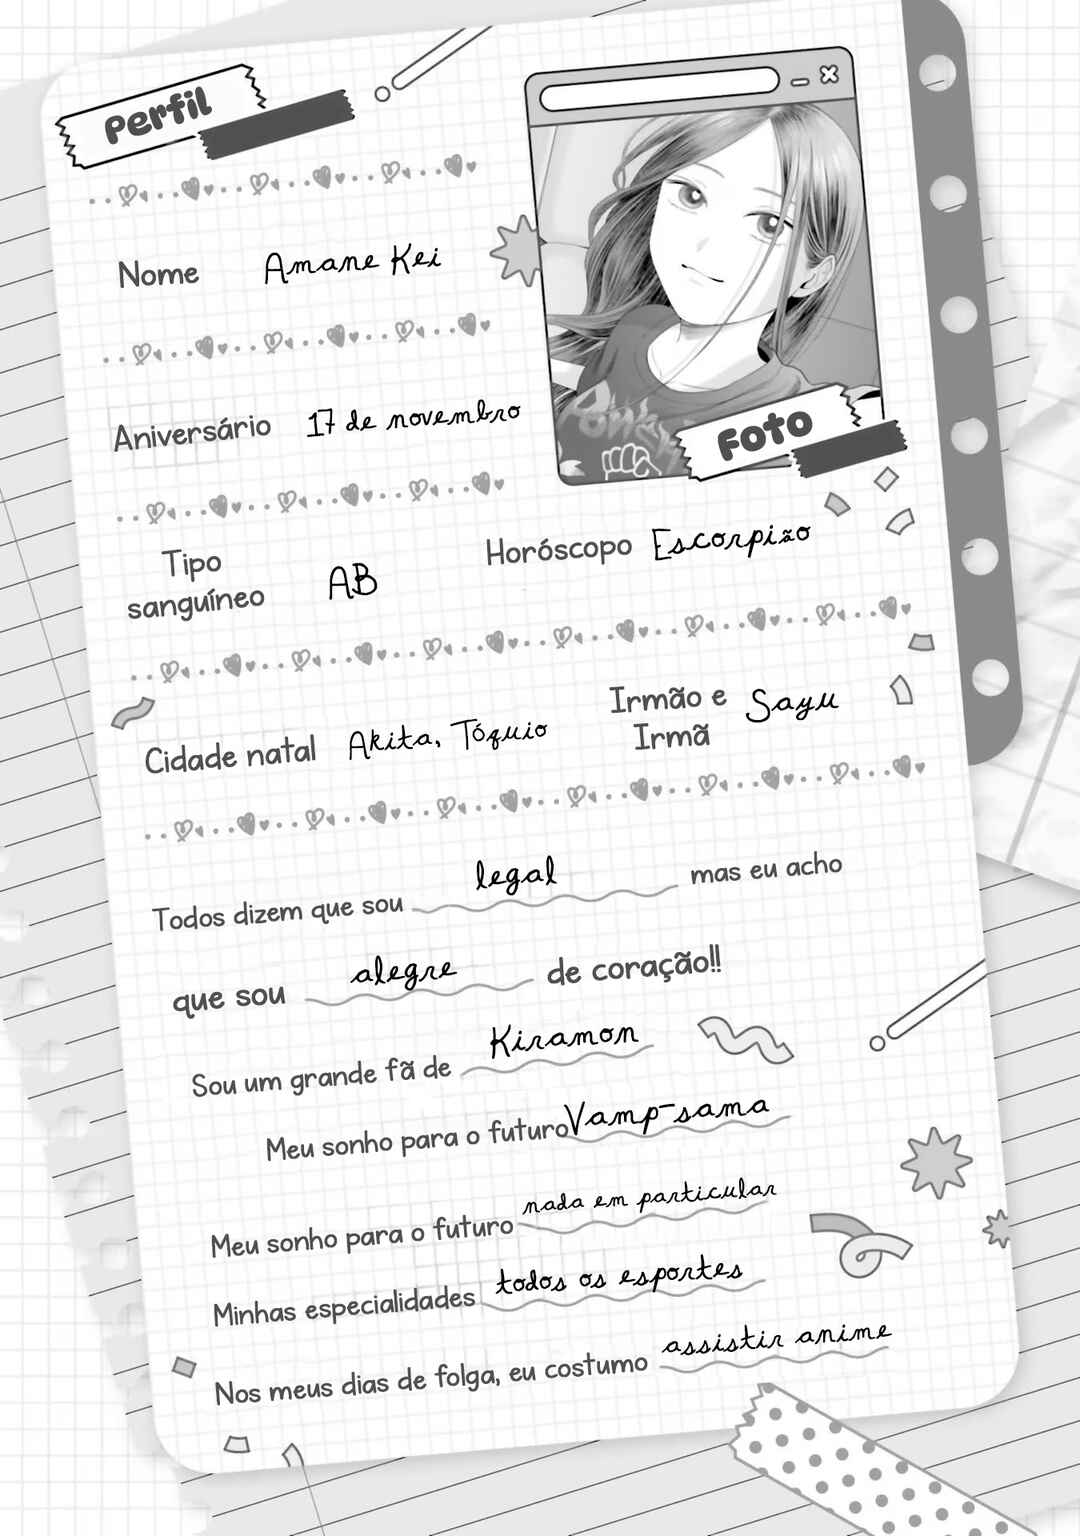 Perfil
Nome Amane Kei
Aniversário 17 de novembro
Foto
Tipo sanguíneo AB
Horóscopo Escorpião
Cidade natal Akita, Tóquio
Irmão e Irmã Sayu
Todos dizem que sou legal mas eu acho
que sou alegre de coração!!
Sou um grande fã de Kiramon
Meu sonho para o futuro Vamp-sama
Meu sonho para o futuro nada em particular
Minhas especialidades todos os esportes
Nos meus dias de folga, eu costumo assistir anime